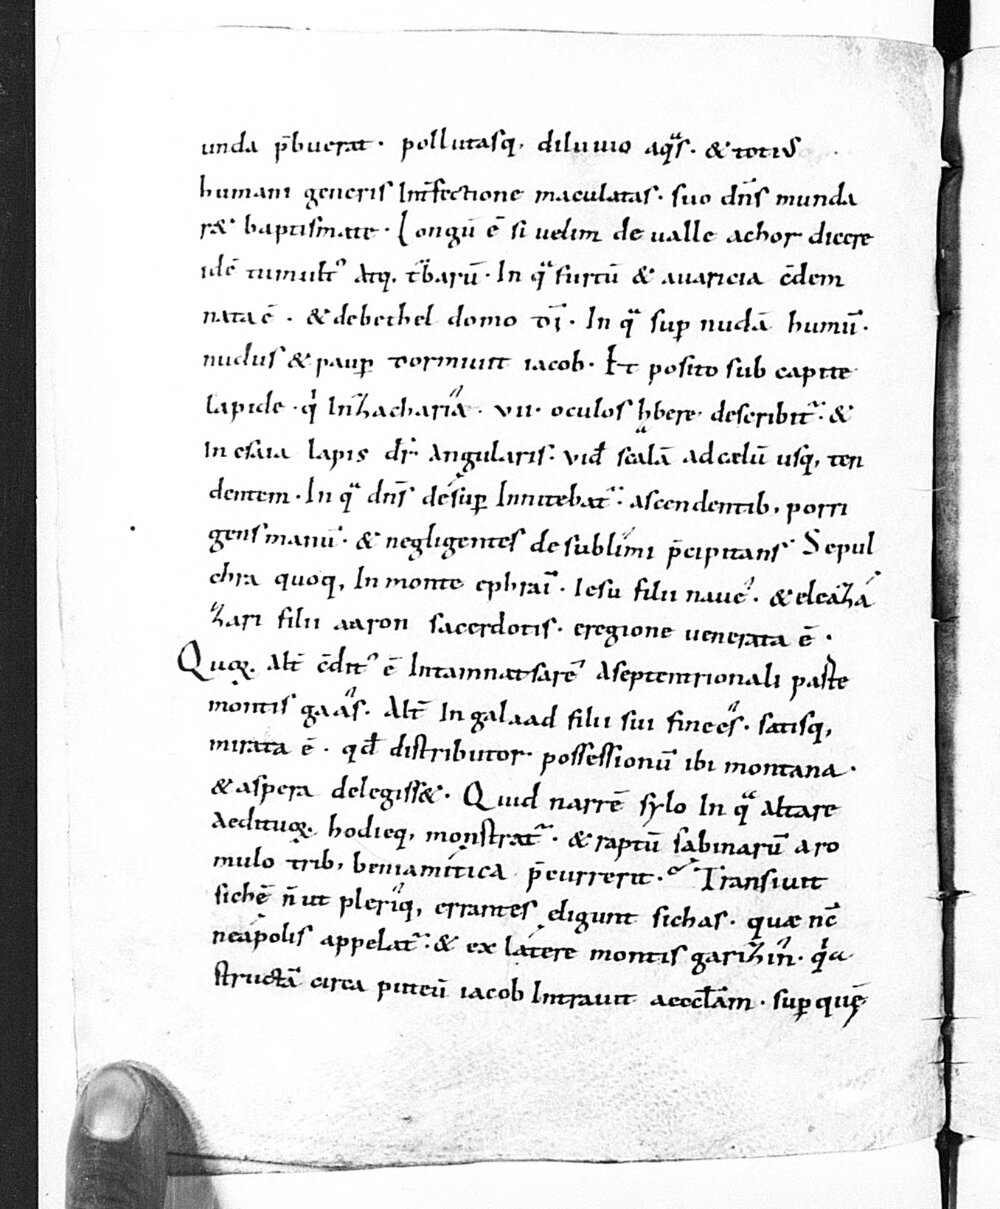 unda p̄buerat · pollutasq; diluuio aqͣs · & totiꝰ
humani generis Int̄fectione maculatas · suo dn̄s munda
r& baptismate · Longū ē si uelim de ualle achor dicere
idē tumultꝰ Atq; t̄barū · In qͣ furtū & auaricia c̄dem
nata ē · & debethel domo dī · In qͣ suꝑ nudā humū ·
nudus & pauꝑ dormiuit iacob · Et posito sub capite
lapide · qͥ In zacharia · vii · oculos hͣbere describit᷑ · &
In esaia lapis dr̄ Angularis · vid̄ scalā ad cælū usq; ten
dentem · In qͣ dn̄s desuꝑ Innitebat᷑ · ascendentib; porri
gens manū · & negligentes de sublimi p̄cipitans · Sepul
chra quoq; In monte ephraī · Iesu filii naue · & eleaza
zari filii aaron sacerdotis · eregione uenerata ē ·
Quoꝝ Alt̄ c̄ditꝰ ē Intamnatsare Aseptemtrionali parte
montis gaas · Alt̄ In galaad filii sui finees · satisq;
mirata ē · qd̄ distributor possessionū ibi montana ·
& aspera delegiss& · Quid narrē sylo In qͣ altare
Aedituoꝝ hodieq; monstrat᷑ · & raptū sabinarū a ro
mulo trib; beniamitica p̄currerit · Transiuit
sichē n̄ ut pleriq; errantes eligunt sichas · quæ nc̄
neapolis appelat᷑ · & ex latere montis garizin · qͥa
structā circa puteū iacob Intrauit aecclām · suꝑ quē